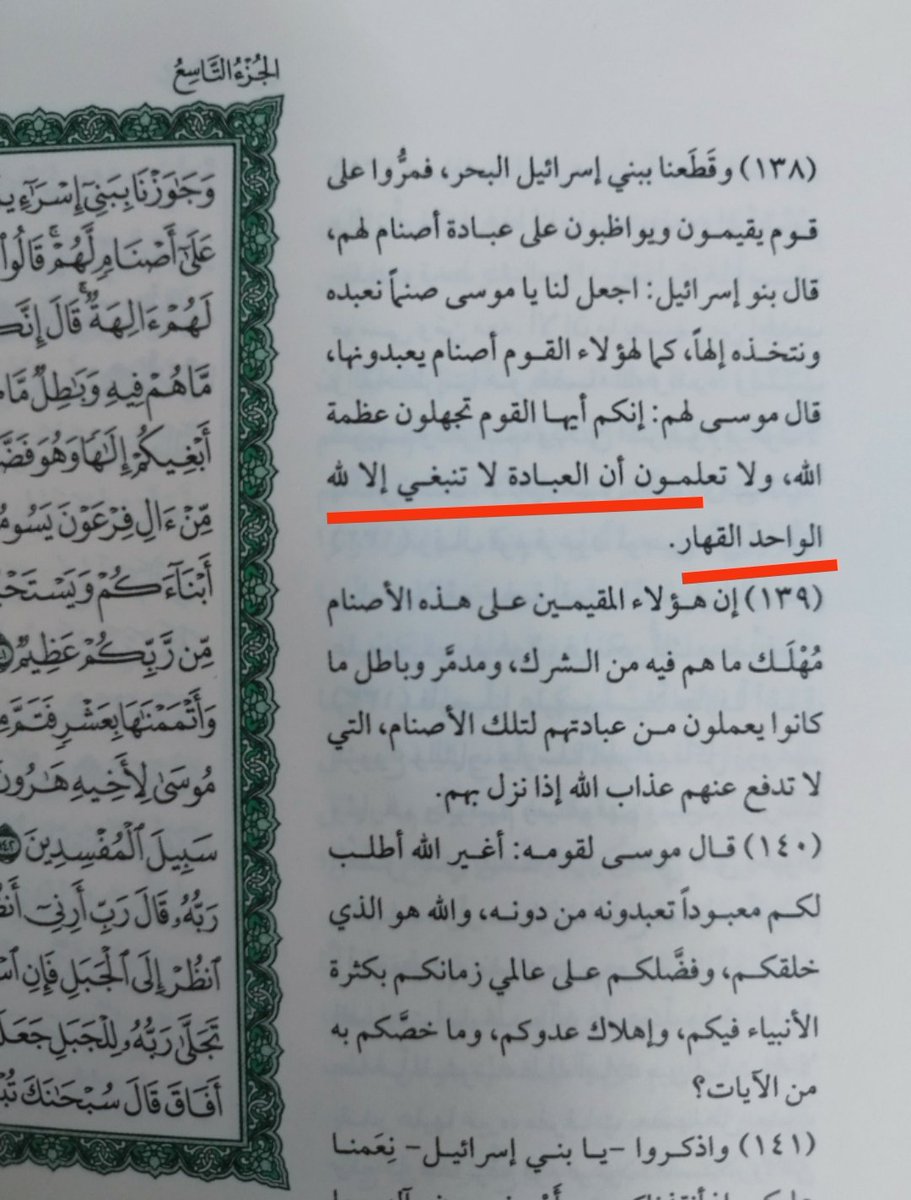 الجُزْءُ التَّاسِعُ
(١٣٨) وقَطَعنا ببني إسرائيل البحر، فمرُّوا على
قوم يقيمون ويواظبون على عبادة أصنام لهم،
قال بنو إسرائيل: اجعل لنا يا موسى صنماً نعبده
ونتخذه إلهاً، كما لهؤلاء القوم أصنام يعبدونها،
قال موسى لهم: إنكم أيها القوم تجهلون عظمة
الله، ولا تعلمون أن العبادة لا تنبغي إلا لله
الواحد القهار.
(١٣٩) إن هؤلاء المقيمين على هذه الأصنام
مُهْلَك ما هم فيه من الشرك، ومدمَّر وباطل ما
كانوا يعملون من عبادتهم لتلك الأصنام، التي
لا تدفع عنهم عذاب الله إذا نزل بهم.
(١٤٠) قال موسى لقومه: أغير الله أطلب
لكم معبوداً تعبدونه من دونه، والله هو الذي
خلقكم، وفضَّلكم على عالمي زمانكم بكثرة
الأنبياء فيكم، وإهلاك عدوكم، وما خصَّكم به
من الآيات؟
(١٤١) واذكروا -يا بني إسرائيل- نِعَمنا
وَجَٰوَزْنَا بِبَنِىٓ
عَلَىٰٓ أَصْنَامٍ لَّهُمْ ۚ
لَهُمْ ءَالِهَةٌ ۚ قَالَ
مَّا هُمْ فِيهِ وَبَٰطِلٌ
أَبْغِيكُمْ إِلَٰهًا وَهُوَ
مِّنْ ءَالِ فِرْعَوْنَ
أَبْنَآءَكُمْ
مِّن رَّبِّكُمْ عَظِيمٌ
وَأَتْمَمْنَٰهَا بِعَشْرٍ فَتَمَّ
مُوسَىٰ لِأَخِيهِ هَٰرُونَ
سَبِيلَ ٱلْمُفْسِدِينَ ١٤٢
رَبُّهُۥ قَالَ رَبِّ أَرِنِىٓ
ٱنظُرْ إِلَى ٱلْجَبَلِ فَإِنِ
تَجَلَّىٰ رَبُّهُۥ لِلْجَبَلِ
أَفَاقَ قَالَ سُبْحَٰنَكَ